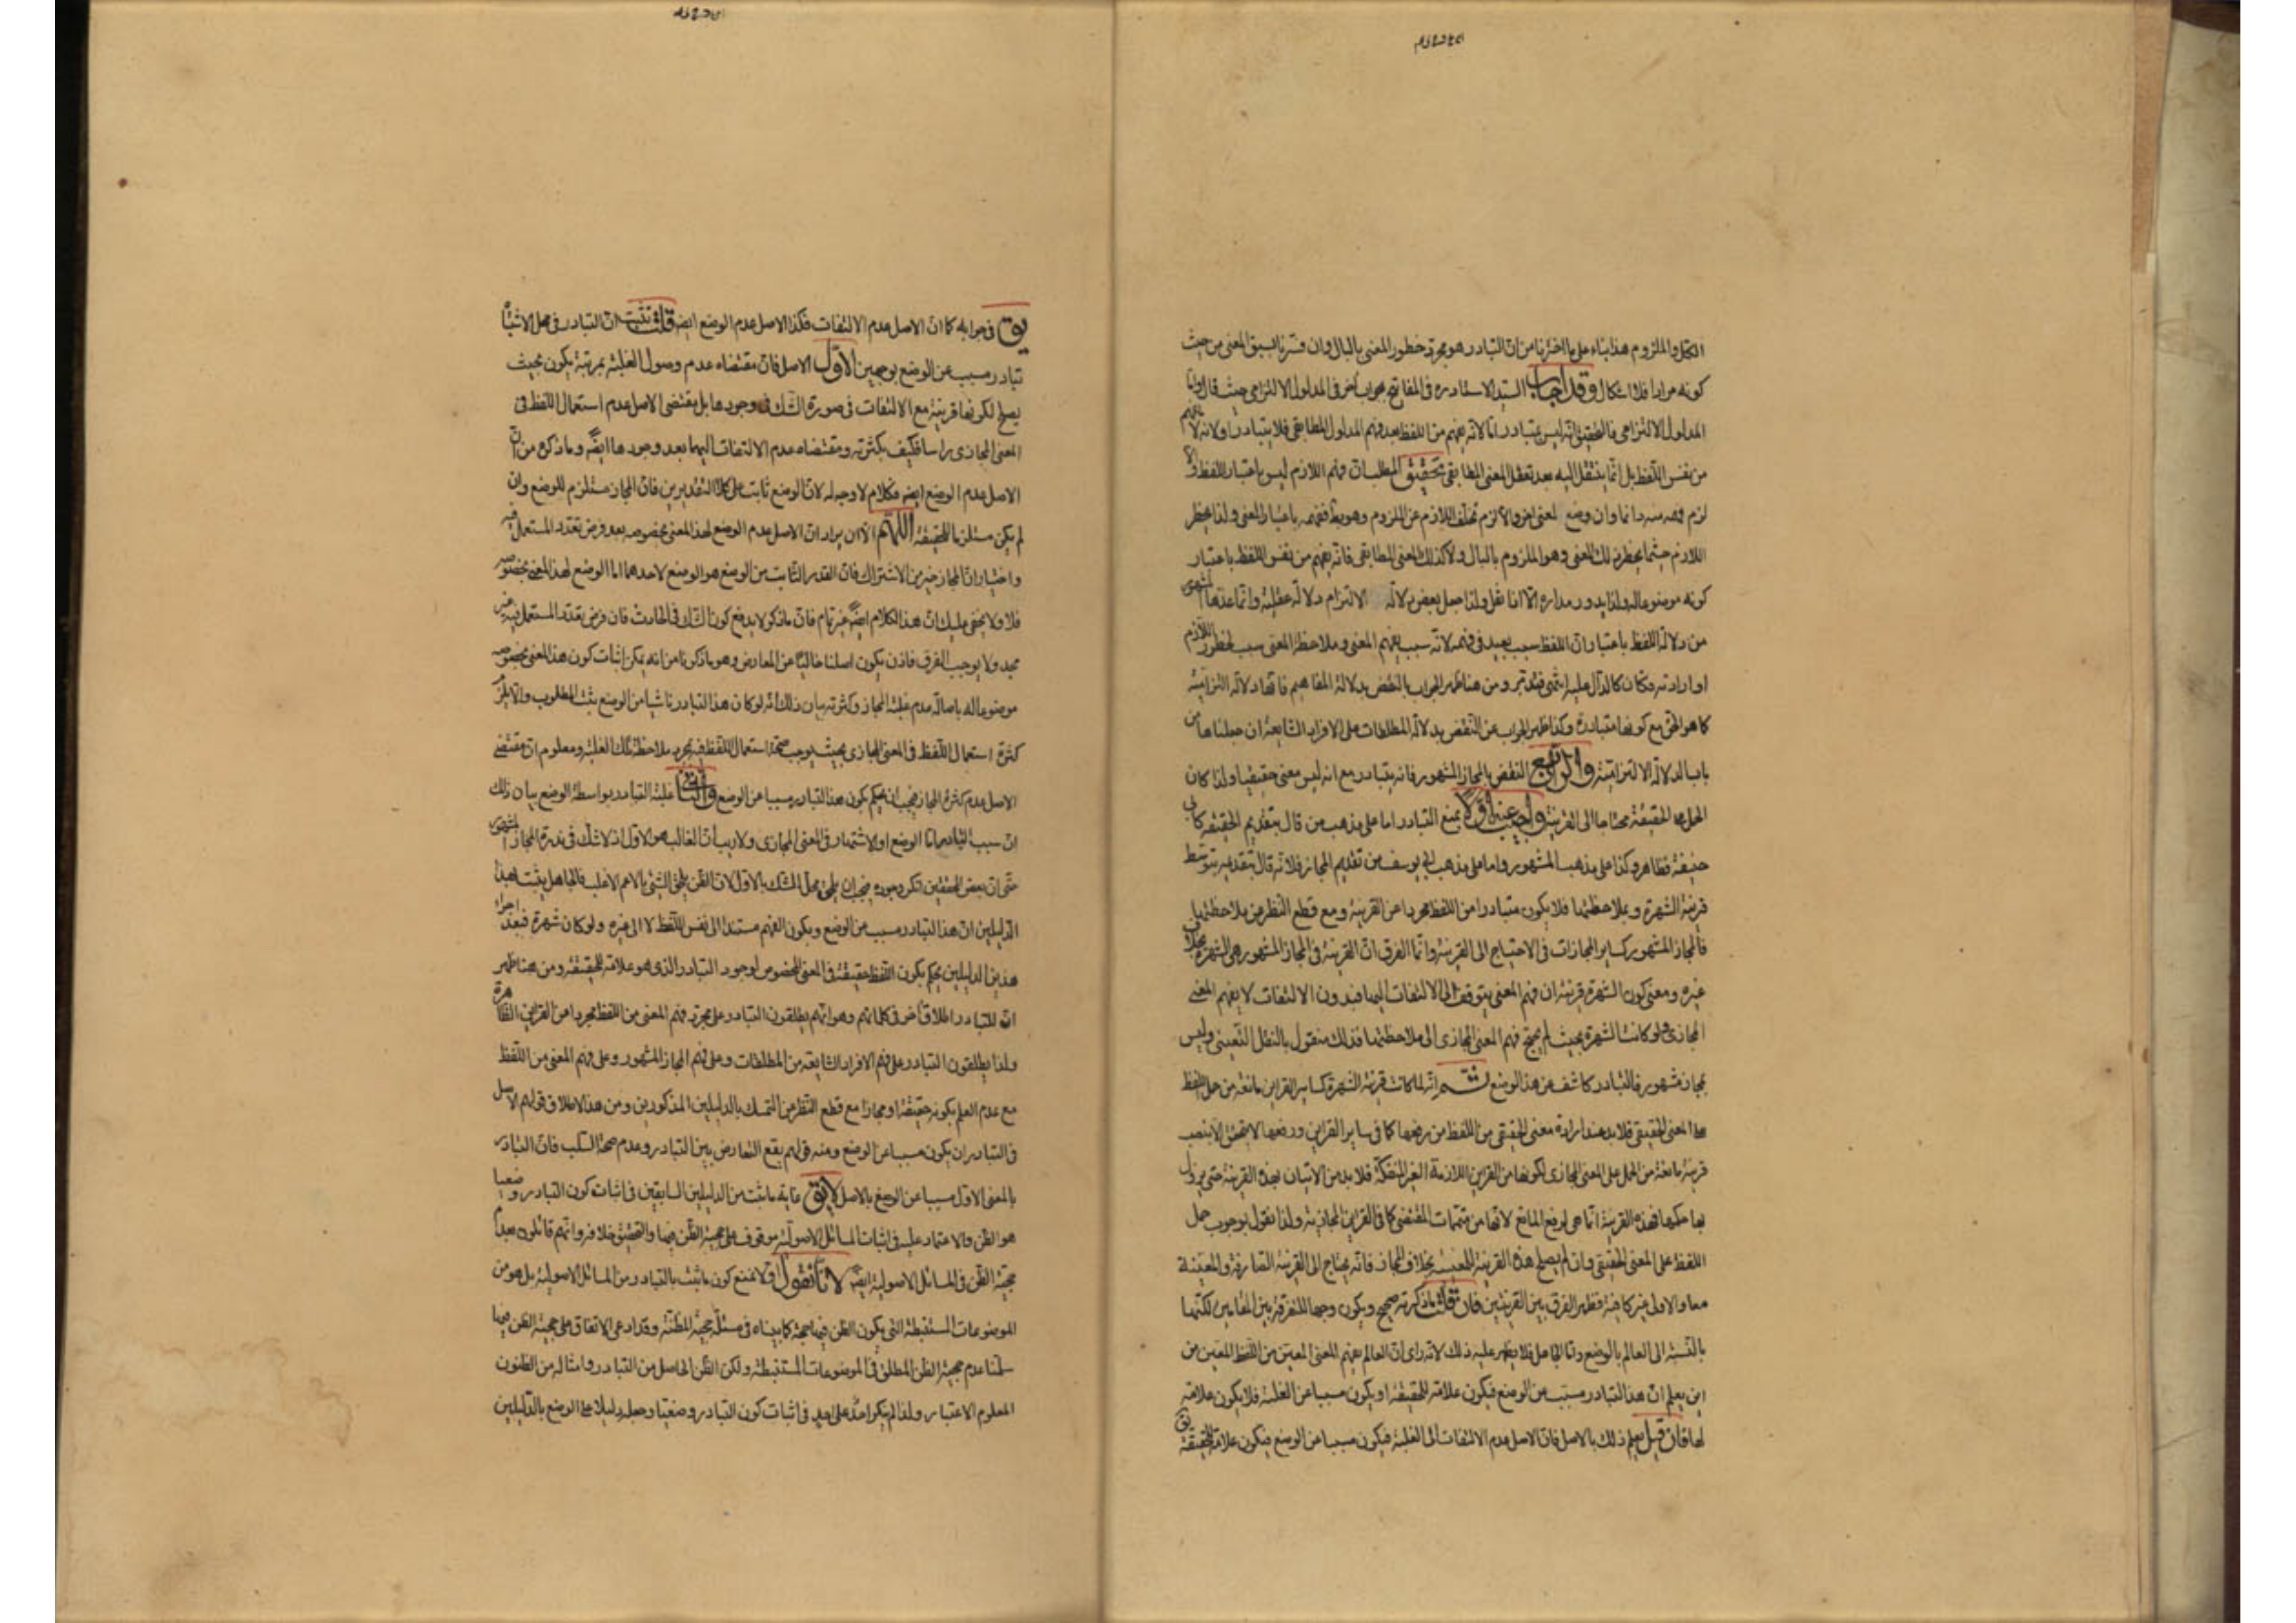 الكل والملزوم هذا بناء على ما اخترنا من ان التبادر هو مجرد خطور المعنى بالبال وان فسرنا بسبق المعنى من حيث
كونه مرادا فلا اشكال وقد اجاب السيد الاستاد ره في المفاتيح بجواب آخر في المدلول الالتزامي حيث قال واما
المدلول الالتزامي فالتحقيق انه ليس بمتبادر اما لانه يفهم من اللفظ بعد فهم المدلول المطابقي فلا يتبادر او لانه لا يفهم
من نفس اللفظ بل انما ينتقل اليه بعد تعقل المعنى المطابقي تحقيق المطلب ان فهم اللازم ليس باعتبار اللفظ والا
لزم فهمه منه دائما وان وضع لمعنى آخر والا لزم تخلف اللازم عن الملزوم وهو بط ففهمه باعتبار المعنى ولذا يخطر
اللازم حيثما يخطر ذلك المعنى وهو الملزوم بالبال ولا كذلك المعنى المطابقي فانه يفهم من نفس اللفظ باعتبار
كونه موضوعا له ولذا يدور مداره اذا نقل ولذا جعل بعض دلالة الالتزام دلالة عقلية وانما عدها المشهور
من دلالة اللفظ باعتبار ان اللفظ سبب بعيد في فهمه لانه سبب لفهم المعنى وملاحظة المعنى سبب لخطور اللازم
او ارادته فكان كالدال عليه انتهى فتدبر ومن هنا ظهر الجواب بالنقض بدلالة المفاهيم فانها دلالة التزامية
كما هو الحق مع كونها متبادرة وكذا ظهر الجواب عن النقض بدلالة المطلقات على الافراد الشايعة ان جعلناها من
باب الدلالة الالتزامية والرابع النقض بالمجاز المشهور فانه يتبادر مع انه ليس معنى حقيقيا ولذا كان
الحمل على الحقيقة محتاجا الى القرينة واجيب عنه اولا بمنع التبادر اما على مذهب من قال بتقديم الحقيقة كابي
حنيفة فظاهر وكذا على مذهب المشهور واما على مذهب ابي يوسف من تقديم المجاز فلانه قال بتقديمه بتوسط
قرينة الشهرة وبملاحظتها فلا يكون متبادرا من اللفظ مجردا عن القرينة ومع قطع النظر من ملاحظتها بل
فالمجاز المشهور كساير المجازات في الاحتياج الى القرينة وانما الفرق ان القرينة في المجاز المشهور هي الشهرة بخلاف
غيره ومعنى كون الشهرة قرينة ان فهم المعنى يتوقف الى الالتفات اليها فبدون الالتفات لا يفهم المعنى
المجازي فلو كانت الشهرة بحيث لم يحتج فهم المعنى المجازي الى ملاحظتها فذلك منقول بالنقل التعيني وليس
بمجاز مشهور فالتبادر كاشف عن هذا الوضع ثم انه لما كانت قرينة الشهرة كساير القراين مانعة من حمل اللفظ
على المعنى الحقيقي فلا بد عند ارادة معنى الحقيقي من اللفظ من رفعها كما في ساير القراين ورفعها لا يتحقق الا بنصب
قرينة مانعة من الحمل على المعنى المجازي لكونها من القراين اللازمة الغير المنفكة فلا بد من الاتيان بهذه القرينة حتى يزول
بها حكمها فهذه القرينة انما هي لرفع المانع لا انها من متممات المقتضي كما في القراين المجازية ولذا نقول بوجوب حمل
اللفظ على المعنى الحقيقي وان لم يصلح هذه القرينة للمعينية بخلاف المجاز فانه يحتاج الى القرينة الصارفة والمعينة
معا والاولى غير كافية فظهر الفرق بين القرينتين فان قلت ما ذكرته صحيح ويكون وجها للتفرقة بين المقامين لكنهما
بالنسبة الى العالم بالوضع واما الجاهل فلا يظهر عليه ذلك لانه راى ان العالم يفهم المعنى المعين من اللفظ المعين من
اين يعلم ان هذا التبادر مسبب من الوضع فيكون علامة للحقيقة او يكون مسببا عن الغلبة فلا يكون علامة
لها فان قيل يعلم ذلك بالاصل فان الاصل عدم الالتفات الى الغلبة فيكون مسببا عن الوضع فيكون علامة للحقيقة
يق في جوابه كما ان الاصل عدم الالتفات فكذا الاصل عدم الوضع ايضا قلت نثبت ان التبادر في محل الاثبات
تبادر مسبب عن الوضع بوجهين الاول الاصل فان مقتضاه عدم وصول الغلبة بمرتبة يكون بحيث
يصلح لكونها قرينة مع الالتفات في صورة الشك في وجودها بل مقتضى الاصل عدم استعمال اللفظ في
المعنى المجازي راسا فكيف بكثرته ومقتضاه عدم الالتفات اليها بعد وجودها ايضا وما ذكره من ان
الاصل عدم الوضع ايضا فكلام لا وجه له لان الوضع ثابت على كلا التقديرين فان المجاز مستلزم للوضع وان
لم يكن مستلزما للحقيقة اللهم الا ان يراد ان الاصل عدم الوضع لهذا المعنى بخصوصه بعد فرض تعدد المستعمل فيه
واختيار ان المجاز خير من الاشتراك فان القدر الثابت من الوضع هو الوضع لاحدهما اما الوضع لهذا المعنى بخصوصه
فلا ولا يخفى عليك ان هذا الكلام ايضا غير تام فان ما ذكر لا يدفع كون الشك في الحادث فان فرض تعدد المستعمل فيه غير
مجد ولا يوجب الفرق فاذن يكون اصلنا خاليا عن المعارض وهو ما ذكرنا من انه يمكن اثبات كون هذا المعنى بخصوصه
موضوعا له باصالة عدم غلبة المجاز وكثرته بيان ذلك انه لو كان هذا التبادر ناشيا من الوضع ثبت المطلوب والا يلزم
كثرة استعمال اللفظ في المعنى المجازي بحيث يوجب صحة استعمال اللفظ فيه بمجرد ملاحظة تلك الغلبة ومعلوم ان مقتضى
الاصل عدم كثرة المجاز فيجب ان يحكم بكون هذا التبادر مسببا عن الوضع والثاني غلبة التبادر بواسطة الوضع بيان ذلك
ان سبب التبادر اما الوضع او الاشتهار في المعنى المجازي ولا ريب ان الغالب هو الاول اذ لا شك في ندرة المجاز المشهور
حتى ان بعض المحققين انكر وجوده فيجب ان يلحق محل الشك بالاول لان الظن يلحق الشئ بالاعم الاغلب فالجاهل يثبت بهذا
الدليلين ان هذا التبادر مسبب عن الوضع ويكون الفهم مستندا الى نفس اللفظ لا الى غيره ولو كان شهرة فبعد اجراء
هذين الدليلين يحكم بكون اللفظ حقيقة في المعنى المخصوص لوجود التبادر الذي هو علامة للحقيقة ومن هنا ظهر
ان للتبادر اطلاق آخر في كلماتهم وهو انهم يطلقون التبادر على مجرد فهم المعنى من اللفظ مجردا من القراين الظاهرة
ولذا يطلقون التبادر على فهم الافراد الشايعة من المطلقات وعلى فهم المجاز المشهور وعلى فهم المعنى من اللفظ
مع عدم العلم بكونه حقيقة او مجازا مع قطع النظر من التمسك بالدليلين المذكورين ومن هذا الاطلاق قولهم الاصل
في التبادر ان يكون مسببا عن الوضع ومنه قولهم يقع التعارض بين التبادر وعدم صحة السلب فان التبادر
بالمعنى الاول مسببا عن الوضع بالاصل لا يق غاية ما ثبت من الدليلين السابقين في اثبات كون التبادر وضعيا
هو الظن والاعتماد عليه في اثبات المسائل الاصولية موقوف على حجية الظن فيها والتحقيق خلافه وانهم قائلون بعدم
حجية الظن في المسائل الاصولية ايضا لانا نقول اولا نمنع كون ما ثبت بالتبادر من المسائل الاصولية بل هو من
الموضوعات المستنبطة التي يكون الظن فيها حجة كما بيناه في مسئلة حجية المظنة وقد ادعي الاتفاق على حجية الظن فيها
سلمنا عدم حجية الظن المطلق في الموضوعات المستنبطة ولكن الظن الحاصل من التبادر وامثاله من الظنون
المعلوم الاعتبار ولذا لم ينكر احد على احد في اثبات كون التبادر وضعيا وجعله دليلا على الوضع بالدليلين